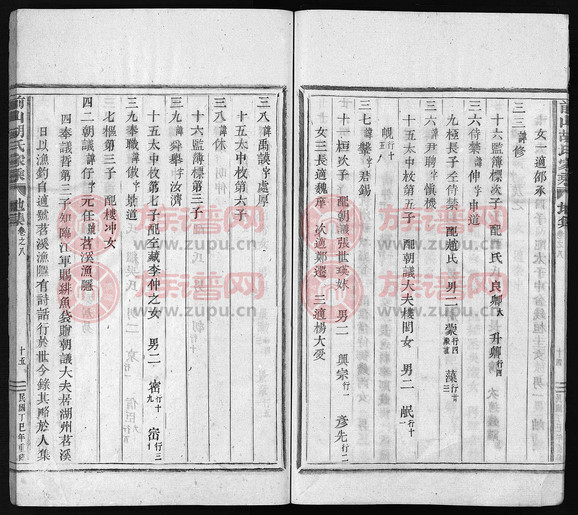 前山胡氏家乘 地集
女一適邵承
三三諱修
十六監簿標次子 配 氏
三六諱侍榮字仲 字申道
九極長子至侍禁 配趙氏 男二
三六諱尹聘字慎機
十五太中枚第五子 配朝議大夫樓閌女 男二
峴行十八
三七諱鑿字君錫
十一桓次子 配朝議張世瑛妹 男二 興宗行一 彥先行二
女三長適魏犖 次適鄭邏 三適楊大受
三八諱禹謨字處厚
十五太中枚第六子
三八諱休
十六監簿標第三子
三九諱舜舉字汝濟
十五太中枚第七子 配至藏李仲之女 男二 密行十九
三九奉職諱倣字景道
七樞第三子 配樓冲女
四二朝議諱仔字元任號苕溪漁隱
四奉議哲第三子知臨江軍賜緋魚袋贈朝議大夫居湖州苕溪
日以漁釣自適號苕溪漁隱有詩話行於世今錄其略於人集
前山胡氏家乘 地集 卷之八 十五 民國丁巳年重修
族谱网
www.zupu.cn